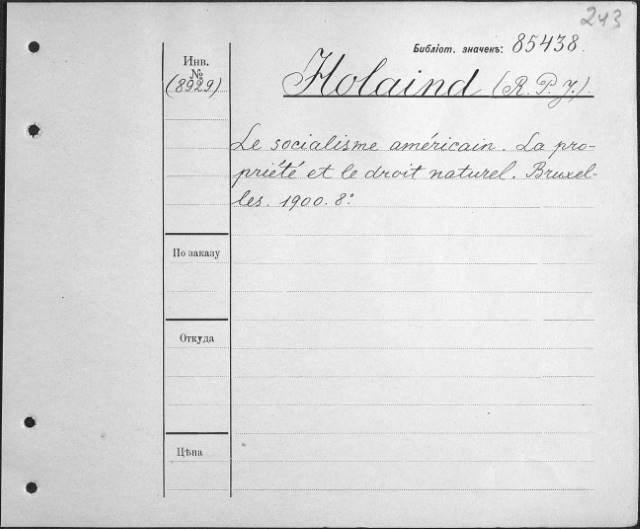 243
Библіот. значекъ: 85438.
Инв.
№
(8929)
Holaind (R. P. J.).
Le socialisme américain. La pro-
priété et le droit naturel. Bruxel-
les. 1900. 8°
По заказу
Откуда
Цѣна